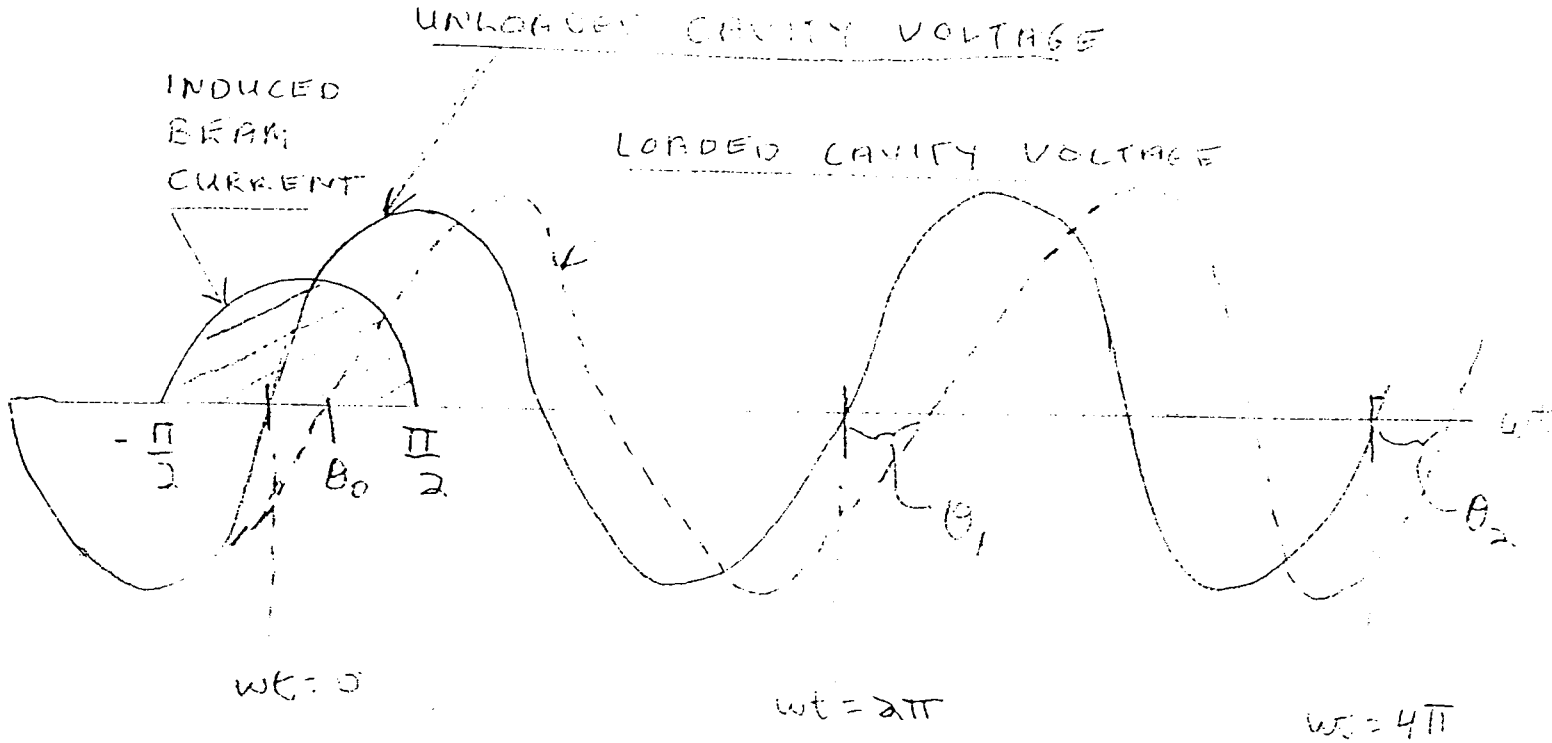 UNLOADED CAVITY VOLTAGE
INDUCED
BEAM
CURRENT
LOADED CAVITY VOLTAGE
-π/2
θ₀
π/2
ωt
θ₁
θ₂
ωt = 0
ωt = 2π
ωt = 4π